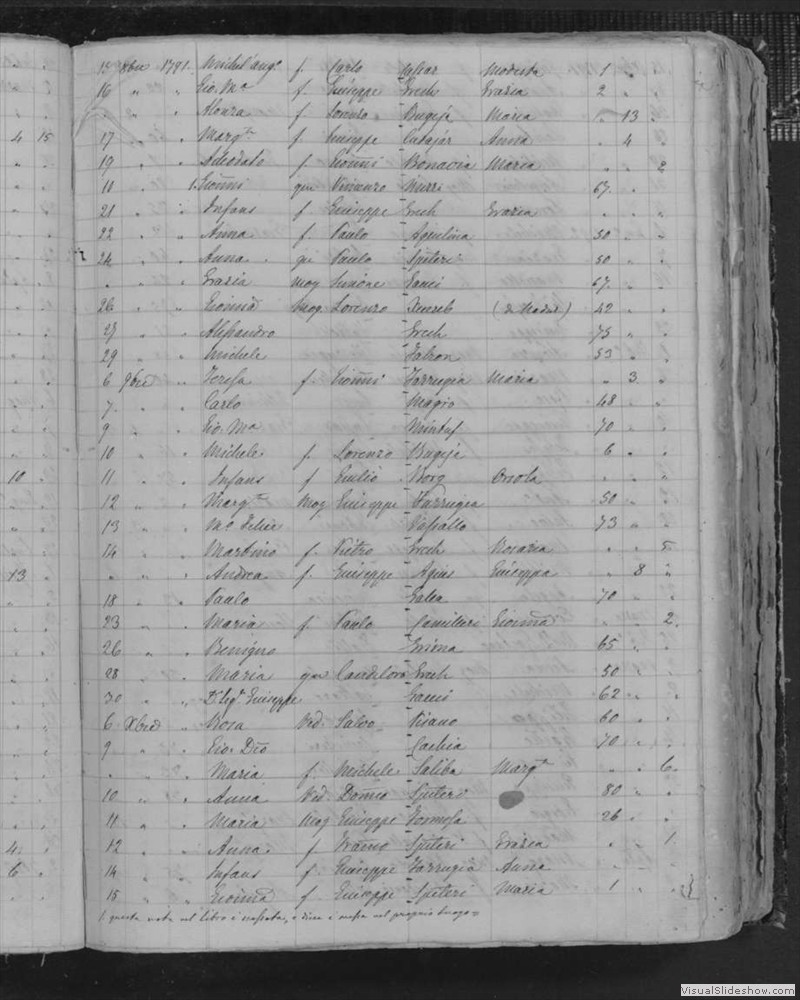 4 15
10
13
4
6
15 8bre 1791. Michel'ang.o f. Carlo Modesta 1
16 Gio. Ma f. Giuseppe Grech Grazia 2
Alonza f. Lorenzo Bugeja Maria 13
17 Marg.ta f. Giuseppe Catajar Anna 4
19 Adeodato f. Gioanni Bonavia Maria 2
Gioanni qm Vincenzo 67.
21 Infans f Giuseppe Grech Grazia
22 Anna f. Paulo Aquilina 50
24 Anna qm Paulo Spiteri 50
Grazia mog Simone Gauci 67.
26 Gionna mog. Lorenzo Xereb 42
27 Alessandro Grech 75
29 Michele Falzon 53
6 9bre Teresa f. Gioanni Farrugia Maria 3.
7. Carlo Magro 48
9 Gio. Ma Mintuf 70
10 Michele f. Lorenzo Bugeja 6
11 Infans f Giulio Borg Orsola
12 Marg.ta Mog Giuseppe Farrugia 50
13 Mo Felice Vassallo 73
14 Martino f. Pietro Grech Rosaria 5
Andrea f. Giuseppe Agius Giuseppa 8
18 Paulo Galea 70
23 Maria f. Paulo Camilleri Gionna 2.
26 Benigno Grima 65
28 Maria qm Candeloro Grech 50
30 Giuseppe Gauci 62
6 Xbre Rosa Ved. Salvo Pisano 60
9 Gio. Dco Cachia 70
Maria f. Michele Saliba Marg.ta 6.
10 Anna Ved. Domco Spiteri 80
11 Maria Mog Giuseppe Formosa 26
12 Anna f Franco Spiteri Grazia 1
14 Infans f. Giuseppe Farrugia Anna
15 Gionna f Giuseppe Spiteri Maria 1
1. questa nota nel libro è e nel proprio luogo
VisualSlideshow.com